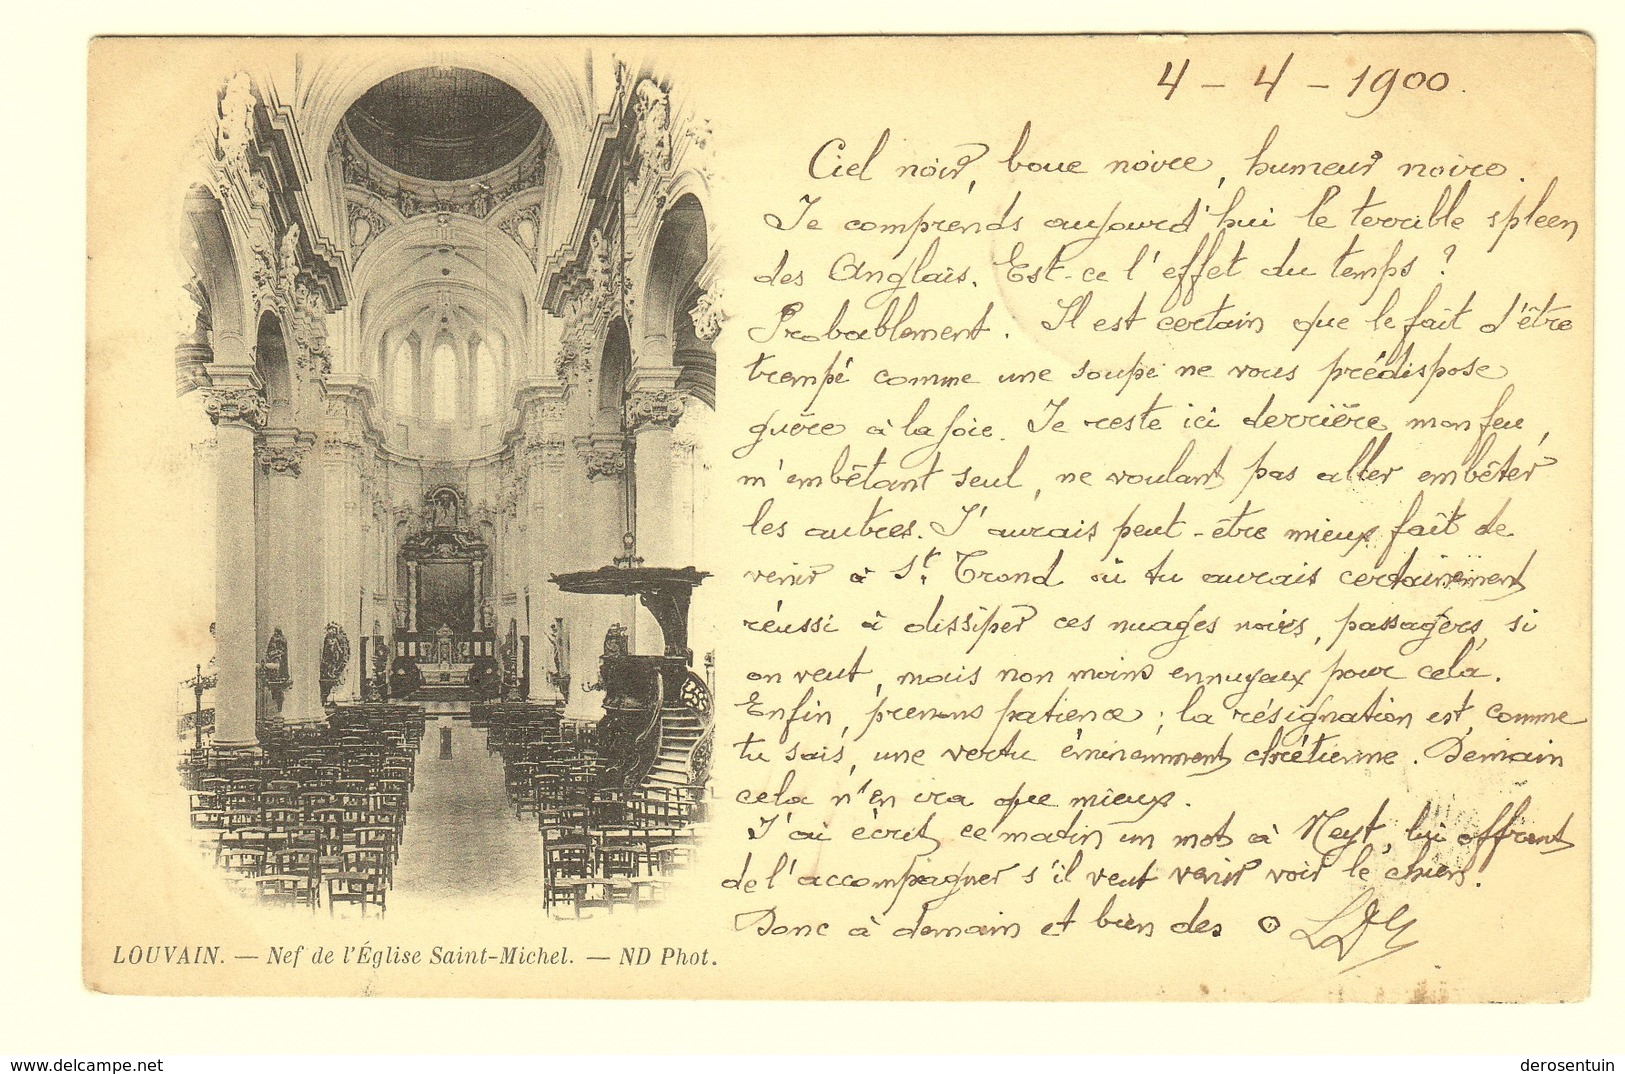 4 - 4 - 1900.
Ciel noir, boue noire, humeur noire.
Je comprends aujourd'hui le terrible spleen
des Anglais. Est-ce l'effet du temps ?
Probablement. Il est certain que le fait d'être
trempé comme une soupe ne vous prédispose
guère à la joie. Je reste ici derrière mon feu,
m'embêtant seul, ne voulant pas aller embêter
les autres. J'aurais peut-être mieux fait de
venir à St. Trond où tu aurais certainement
réussi à dissiper ces nuages noirs, passagers, si
on veut, mais non moins ennuyeux pour cela.
Enfin, prenons patience ; la résignation est, comme
tu sais, une vertu éminemment chrétienne. Demain
cela n'en ira que mieux.
J'ai écrit ce matin un mot à Neyt, lui offrant
de l'accompagner s'il veut venir voir le chien.
Donc à demain et bien des
LOUVAIN. — Nef de l'Église Saint-Michel. — ND Phot.
https://www.delcampe.net
derosentuin